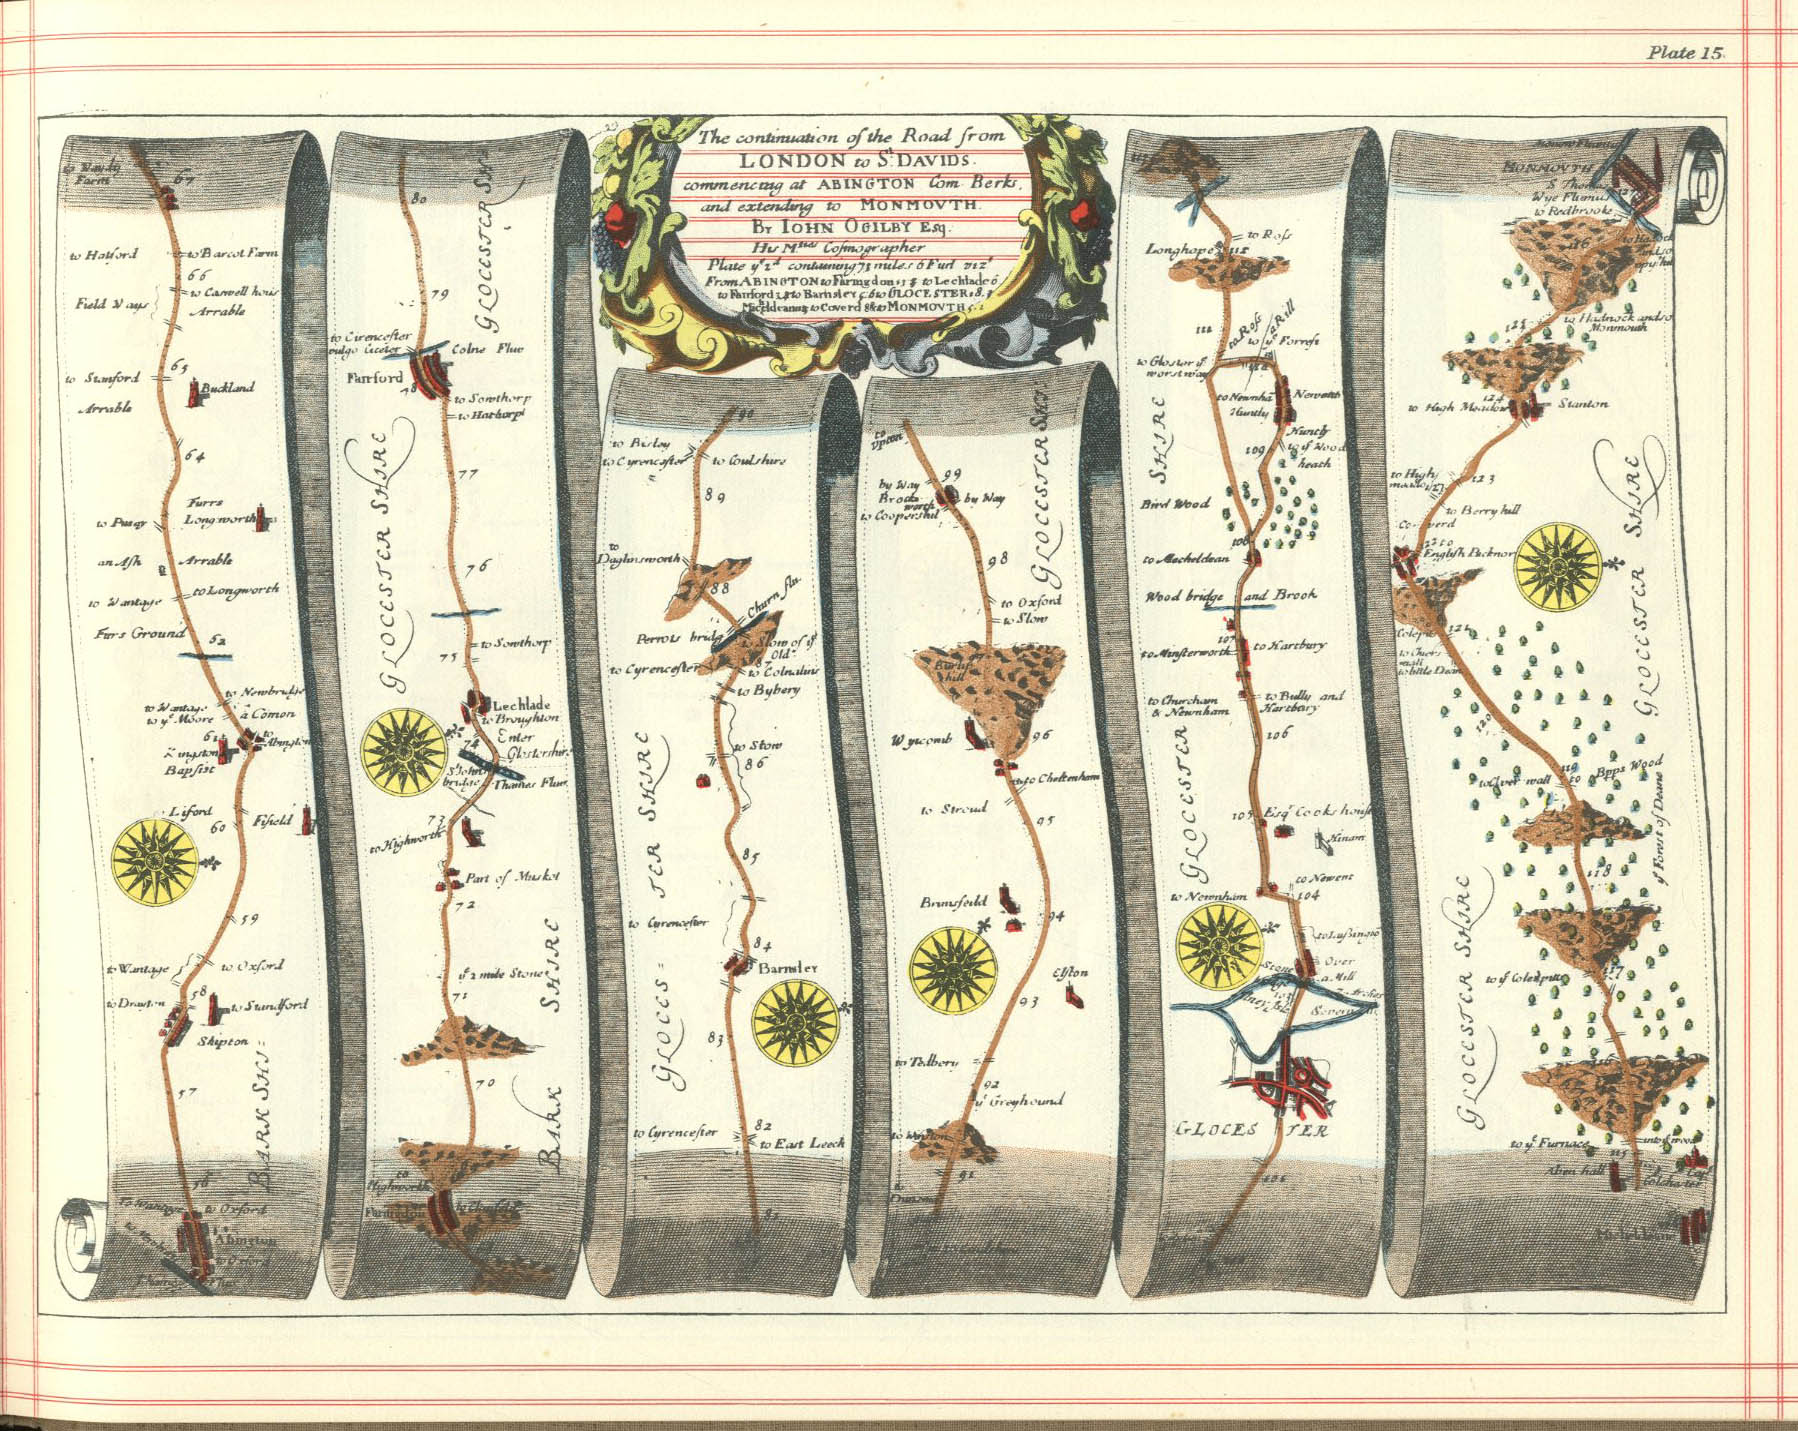 Plate 15.
The continuation of the Road from
LONDON to St. DAVIDS.
commencing at ABINGTON Com Berks.
and extending to MONMOVTH.
By IOHN OGILBY Esq.
His Mties Cosmographer
Plate ye 2d containing 73 miles 6 Furl
From ABINGTON to Faringdon to Lechlade 6
to Fairford to Barnsley to GLOCESTER
to Coverd to MONMOVTH
67
to Hatford
to Barcot Farm
66
Field Ways
to Caswell hous
Arrable
65
to Stanford
Buckland
Arrable
64
Furrs
Longworth
to Pusey
an Ash
Arrable
to Wantage
to Longworth
Furs Ground
62
to Newbridge
to Wantage
to ye Moore
a Comon
61
to Abington
Kingston
Bapsist
Liford
60
Fifield
59
to Wantage
to Oxford
58
to Drayton
to Standford
Shipton
57
BARK SHI=
56
to Wantage
to Oxford
Abington
to Oxford
80
GLOCESTER SHI=
79
to Cirencester
vulgo Ciceter
Colne Fluv
Fairford
to Sowthorp
to Hathorp
GLOCESTER SHIRE
77
76
to Sowthorp
75
Lechlade
to Broughton
Enter
Glostershire
74
St Johns
bridge
Thames Fluv
73
to Highworth
Part of Muskot
72
ye 2 mile Stone
71
BARK SHIRE
70
to
Highworth
Faringdon
90
to Bisley
to Cyrencester
to Coulshire
89
to
Daglinsworth
88
Churn flu.
Perrots bridg
to Stow of ye
Old
to Cyrencester
87
to Colnalins
to Bybery
to Stow
86
GLOCES=TER SHIRE
85
to Cyrencester
84
Barnsley
83
82
to Cyrencester
to East Leech
81
to
Upton
GLOCESTER SHI=
99
by Way
Brockworth
by Way
to Coopershil
98
to Oxford
to Slow
Burlip
hill
Wycomb
96
to Cheltenham
to Stroud
95
Brimsfeild
94
Elston
93
to Tedbery
92
ye Greyhound
to Winston
91
to Ross
Longhope
112
GLOCESTER SHIRE
111
to Ross
a Rill
to ye Forrest
to Gloster ye
worst way
110
to Newnha
Huntly
Newent
Huntly
109
to ye Wood
heath
Bird Wood
108
to Mecheldean
Wood bridge and Brook
107
to Minsterworth
to Hartbury
to Churcham
& Newnham
to Bully and
Hartbury
106
105
Esqr Cooks house
Hinam
to Newent
to Newnham
104
to Lassington
Over
a Mill
Stone
7 Arches
GLOCESTER
101
MONMOVTH
Wye Fluvius
to Redbrooke
116
to Hadnock and so
Monmouth
125
124
to High Meadow
Stanton
to High
meadow
123
to Berry hill
Coverd
English Bicknor
GLOCESTER SHIRE
121
to little Dean
120
119
Bpps Wood
ye Forest of Deane
118
to ye Colepits
117
GLOCESTER SHIRE
116
to ye Furnace
115
Aben hall
Micheldeane